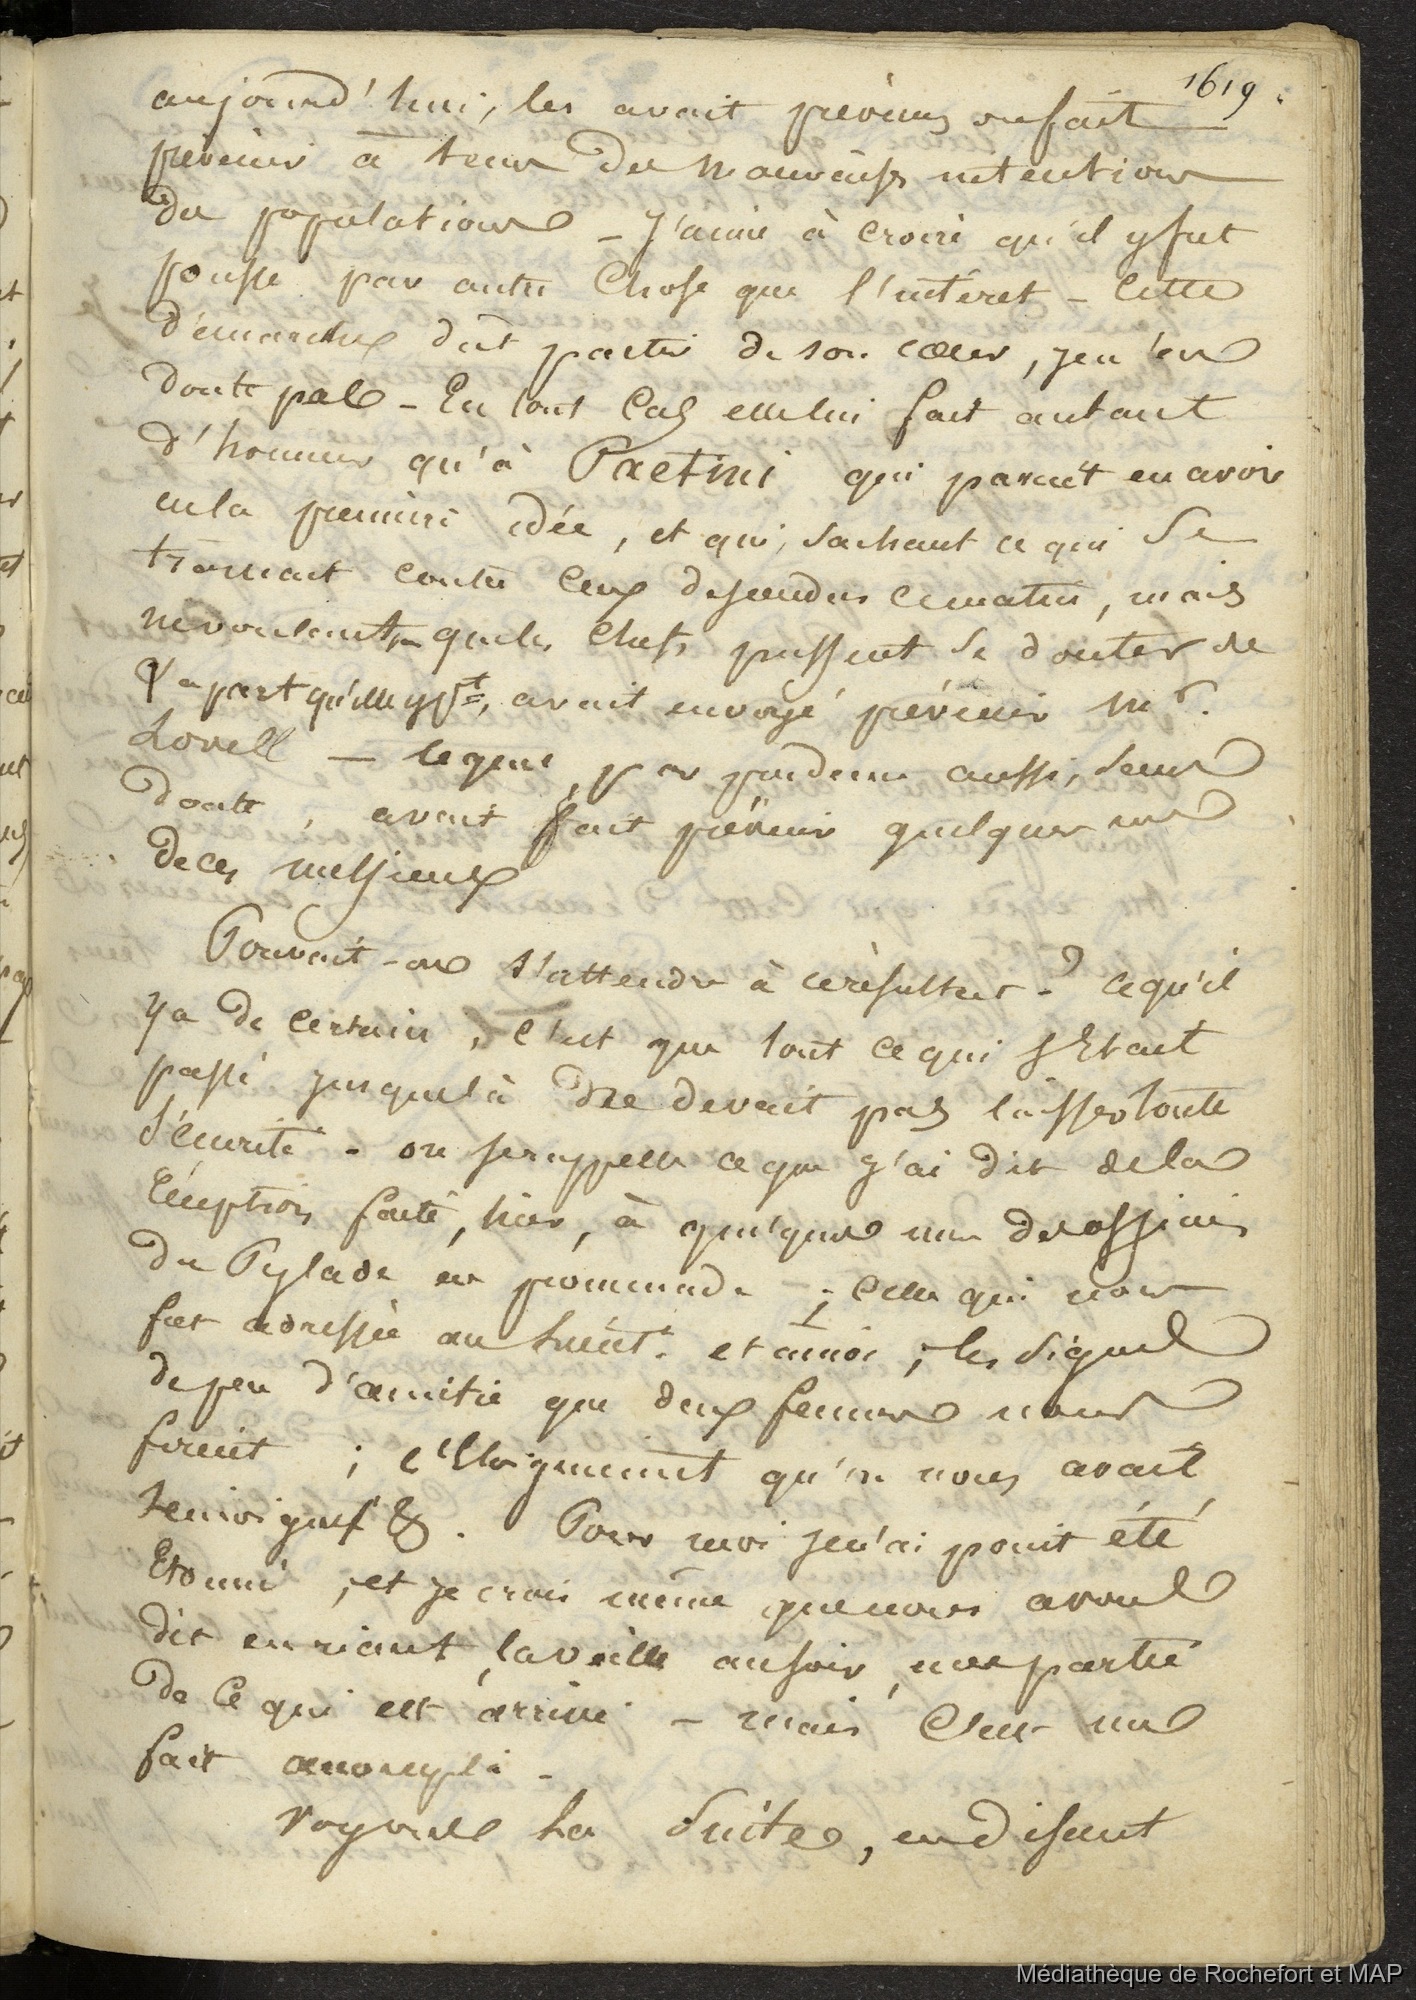 1619.
aujourd'hui, les avait prévenus ou fait
prévenir à tems des mauvaises intentions
des populations – J'aime à croire qu'il y fut
poussé par autre chose que l'intéret – cette
démarche dut partir de son cœur, je n'en
doute pas – En tout cas elle lui fait autant
d'honneur qu'à Paetini qui parait en avoir
eu la première idée, et qui, sachant ce qui se
tramait contre ceux descendus ce matin, mais
ne voulant que les chefs pussent se douter de
la part qu'elle y pt, avait envoyé prévenir Mr.
Lovell – lequel, par prudence aussi, sans
doute, avait fait prévenir quelques uns
de ces messieurs
Pouvait-on s'attendre à ce résultat – ? ce qu'il
y a de certain, c'est que tout ce qui s'était
passé jusque là ne devait pas laisser toute
sécurité – on se rappelle ce que j'ai dit de la
réception faite, hier, à quelques uns des officiers
du Pylade en promenade – ; celle qui nous
fut adressée au lieut. et à moi ; les signes
de peu d'amitié que deux femmes nous
firent ; l'éloignement qu'on nous avait
temoigné &. Pour moi je n'ai point été
étonné, et je crois même que nous avons
dit en riant, la veille au soir, une partie
de ce qui est arrivé – mais c'est un
fait accompli –
Voyons la suite, en disant
Médiathèque de Rochefort et MAP